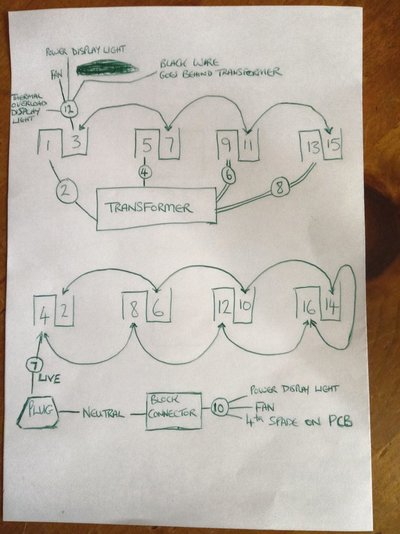 POWER DISPLAY LIGHT
BLACK WIRE
GOES BEHIND TRANSFORMER
FAN
THERMAL
OVERLOAD
DISPLAY
LIGHT
12
1 3 5 7 9 11 13 15
2 4 6 8
TRANSFORMER
4 2 8 6 12 10 16 14
7
LIVE
PLUG
NEUTRAL
BLOCK
CONNECTOR
10
POWER DISPLAY LIGHT
FAN
4TH SPADE ON PCB